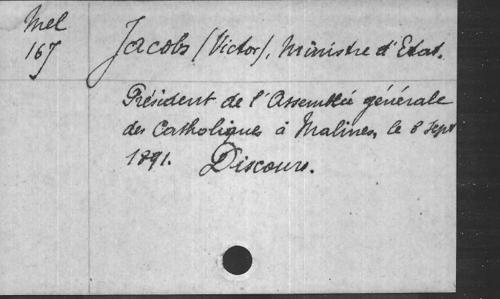 Mel
167
Jacobs (Victor), Ministre d'Etat.
Président de l'Assemblée générale
des Catholiques à Malines, le 8 Sept
1891. Discours.